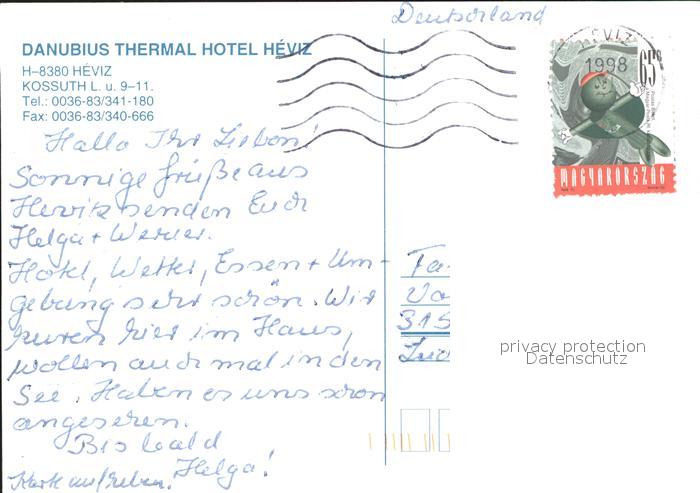 Deutschland
DANUBIUS THERMAL HOTEL HÉVIZ
H–8380 HÉVIZ
KOSSUTH L. u. 9–11.
Tel.: 0036-83/341-180
Fax: 0036-83/340-666
HÉVIZ
1998
65
MAGYARORSZÁG
Hallo Ihr Lieben!
Sonnige Grüße aus
Heviz senden Euch
Helga + Werner.
Hotel, Wetter, Essen + Um-
gebung sehr schön. Wir
kuren hier im Haus,
wollen auch mal in den
See. Haben es uns schon
angesehen.
Bis bald
Helga!
Karte aufheben!
Fa
315
privacy protection
Datenschutz